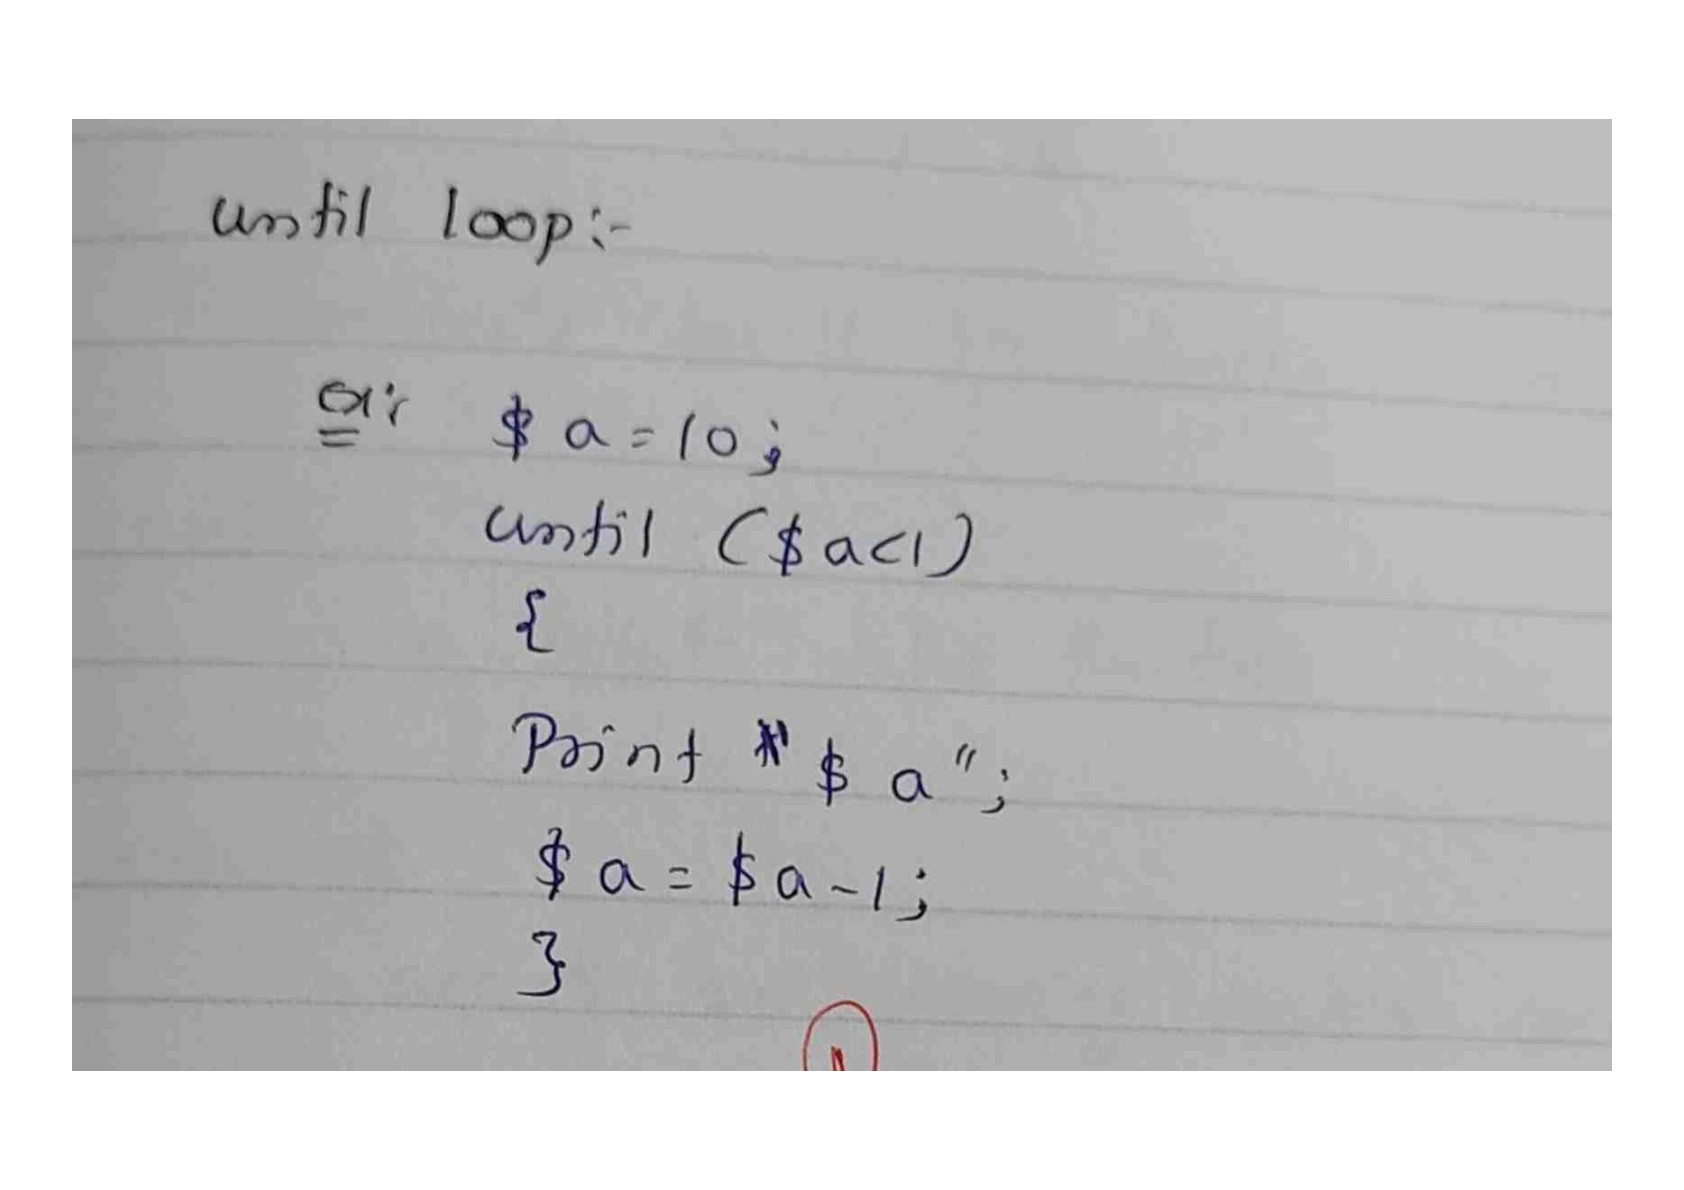 until loop:-
ex:
$ a = 10;
until ($ a<1)
{
Print "$ a";
$ a = $ a - 1;
}